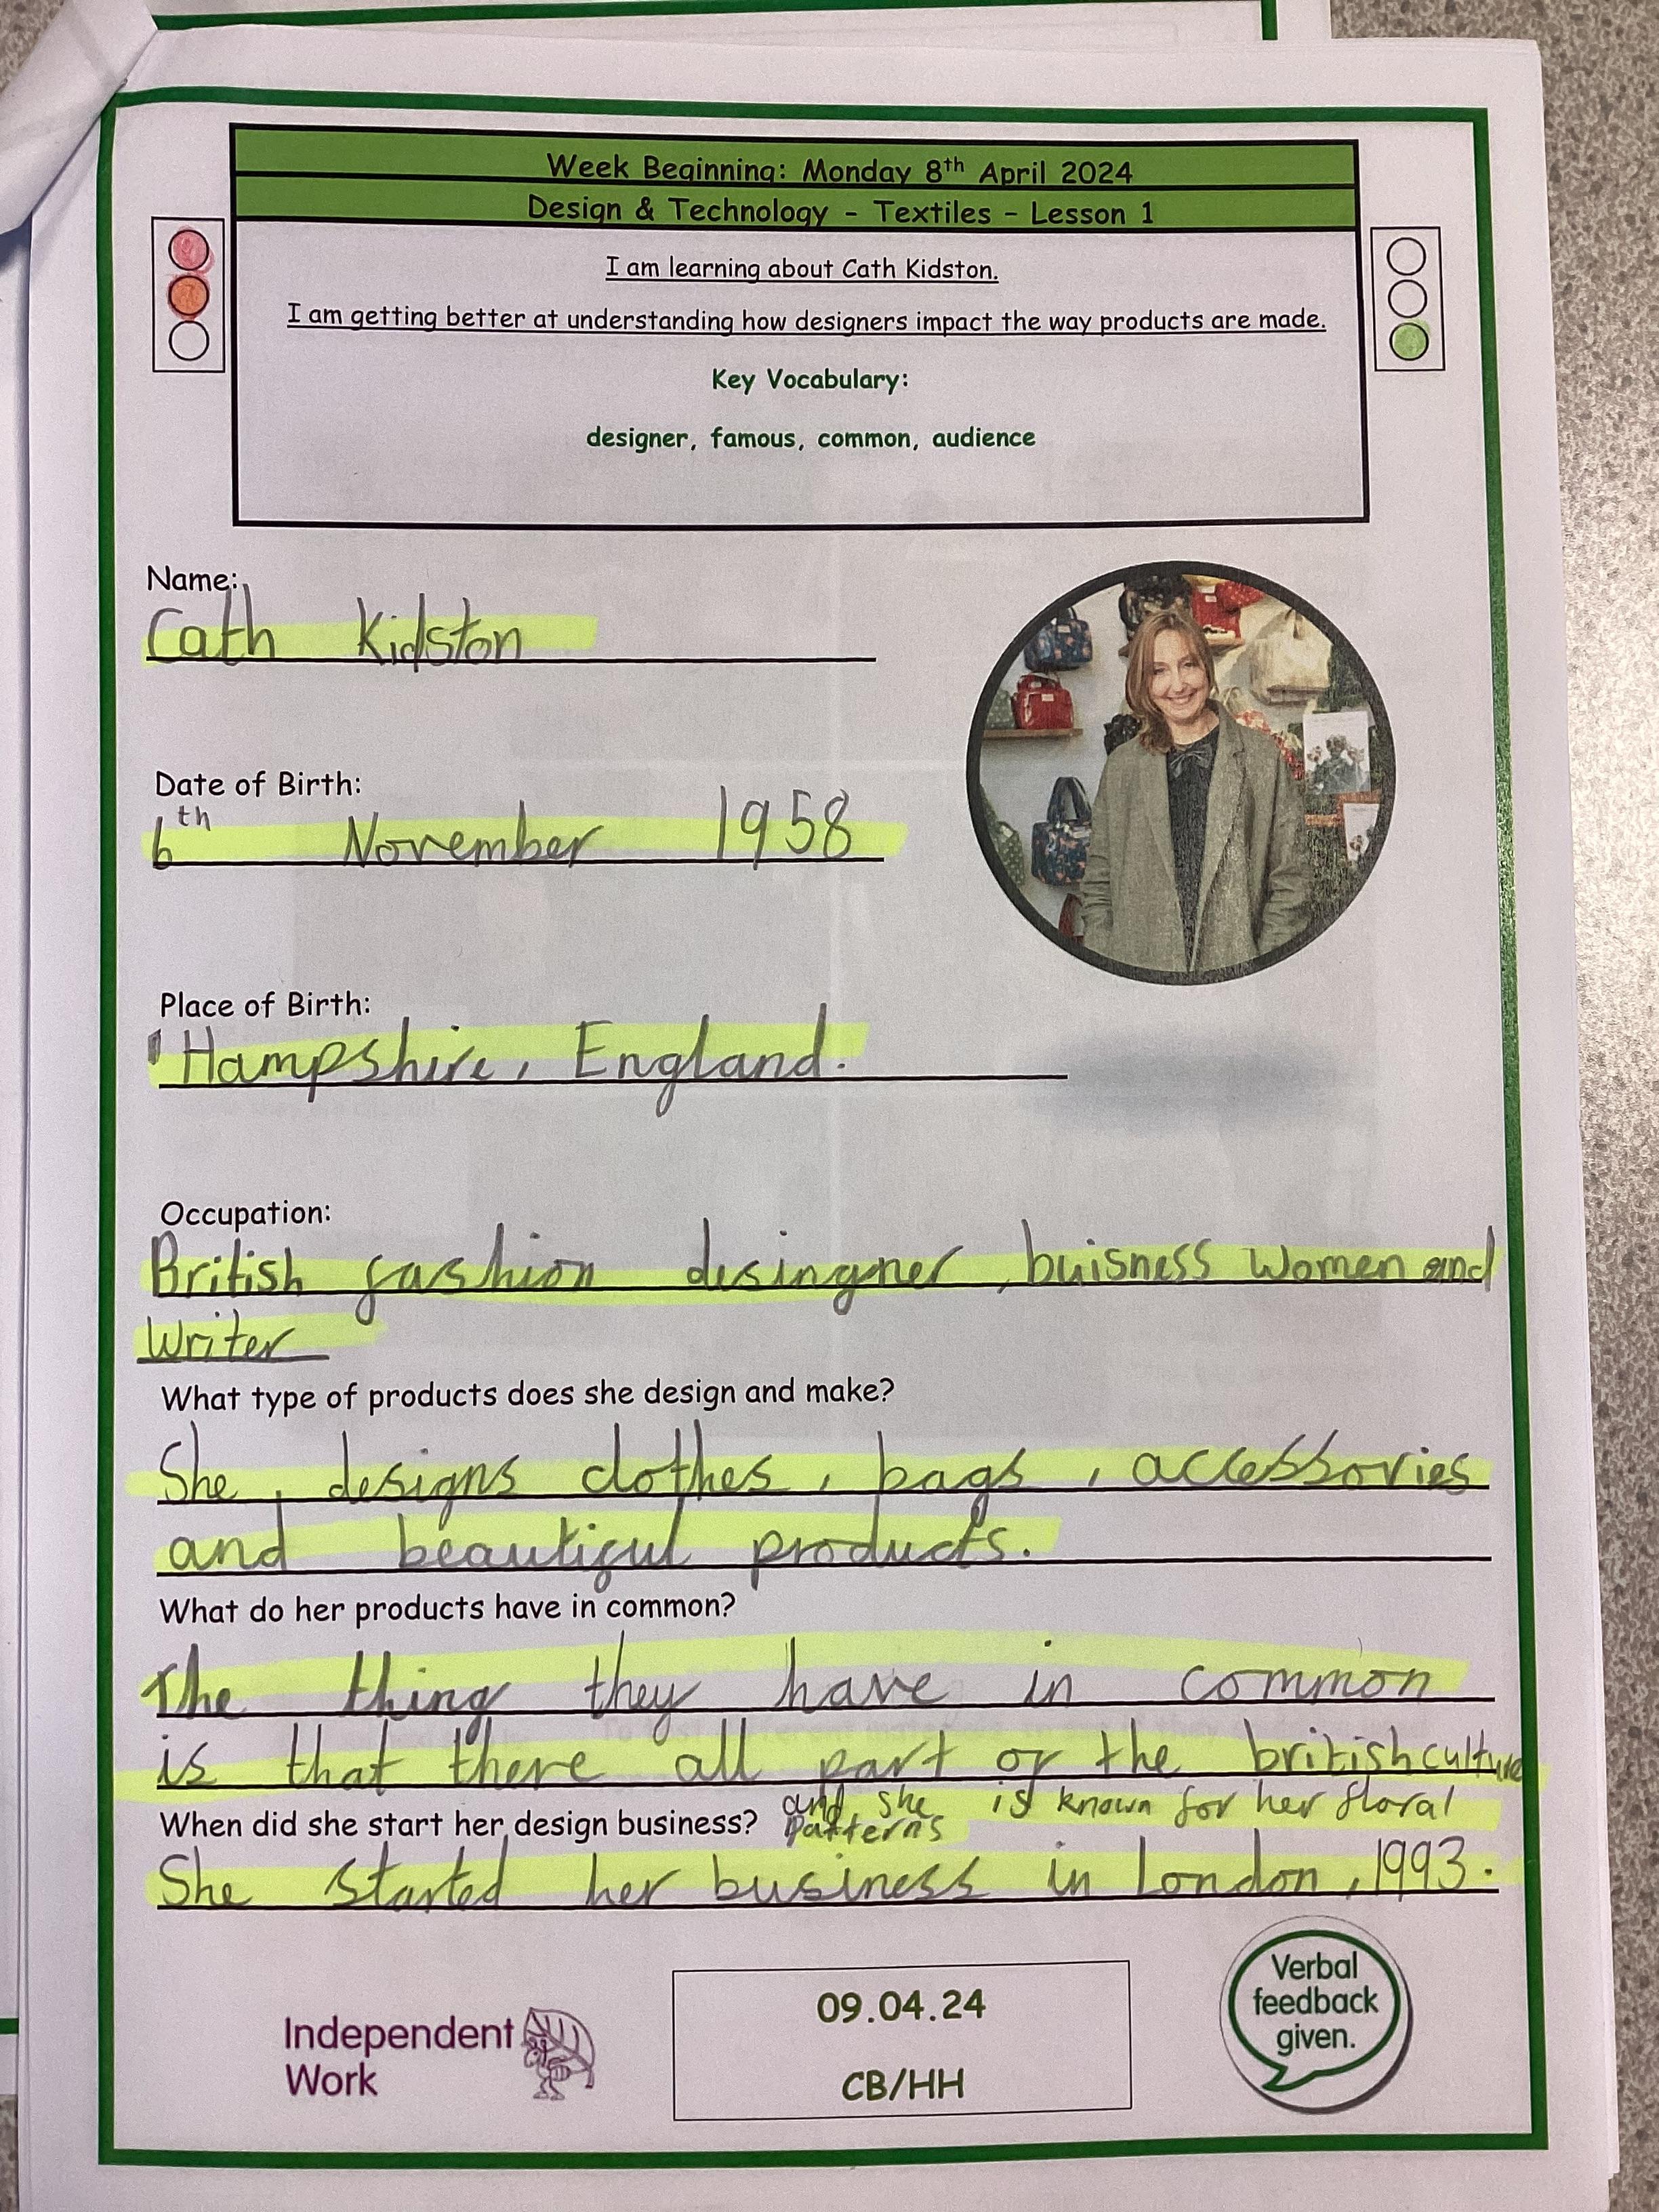 Week Beginning: Monday 8th April 2024
Design & Technology - Textiles - Lesson 1
I am learning about Cath Kidston.
I am getting better at understanding how designers impact the way products are made.
Key Vocabulary:
designer, famous, common, audience
Name:
Cath Kidston
Date of Birth:
6th November 1958
Place of Birth:
Hampshire, England.
Occupation:
British fashion desingner, buisness women and
writer
What type of products does she design and make?
She, designs clothes, bags, accessories
and beautiful products.
What do her products have in common?
The thing they have in common
is that there all part of the british culture
and she is known for her floral
patterns
When did she start her design business?
She started her business in London, 1993.
Independent
Work
09.04.24
CB/HH
Verbal
feedback
given.